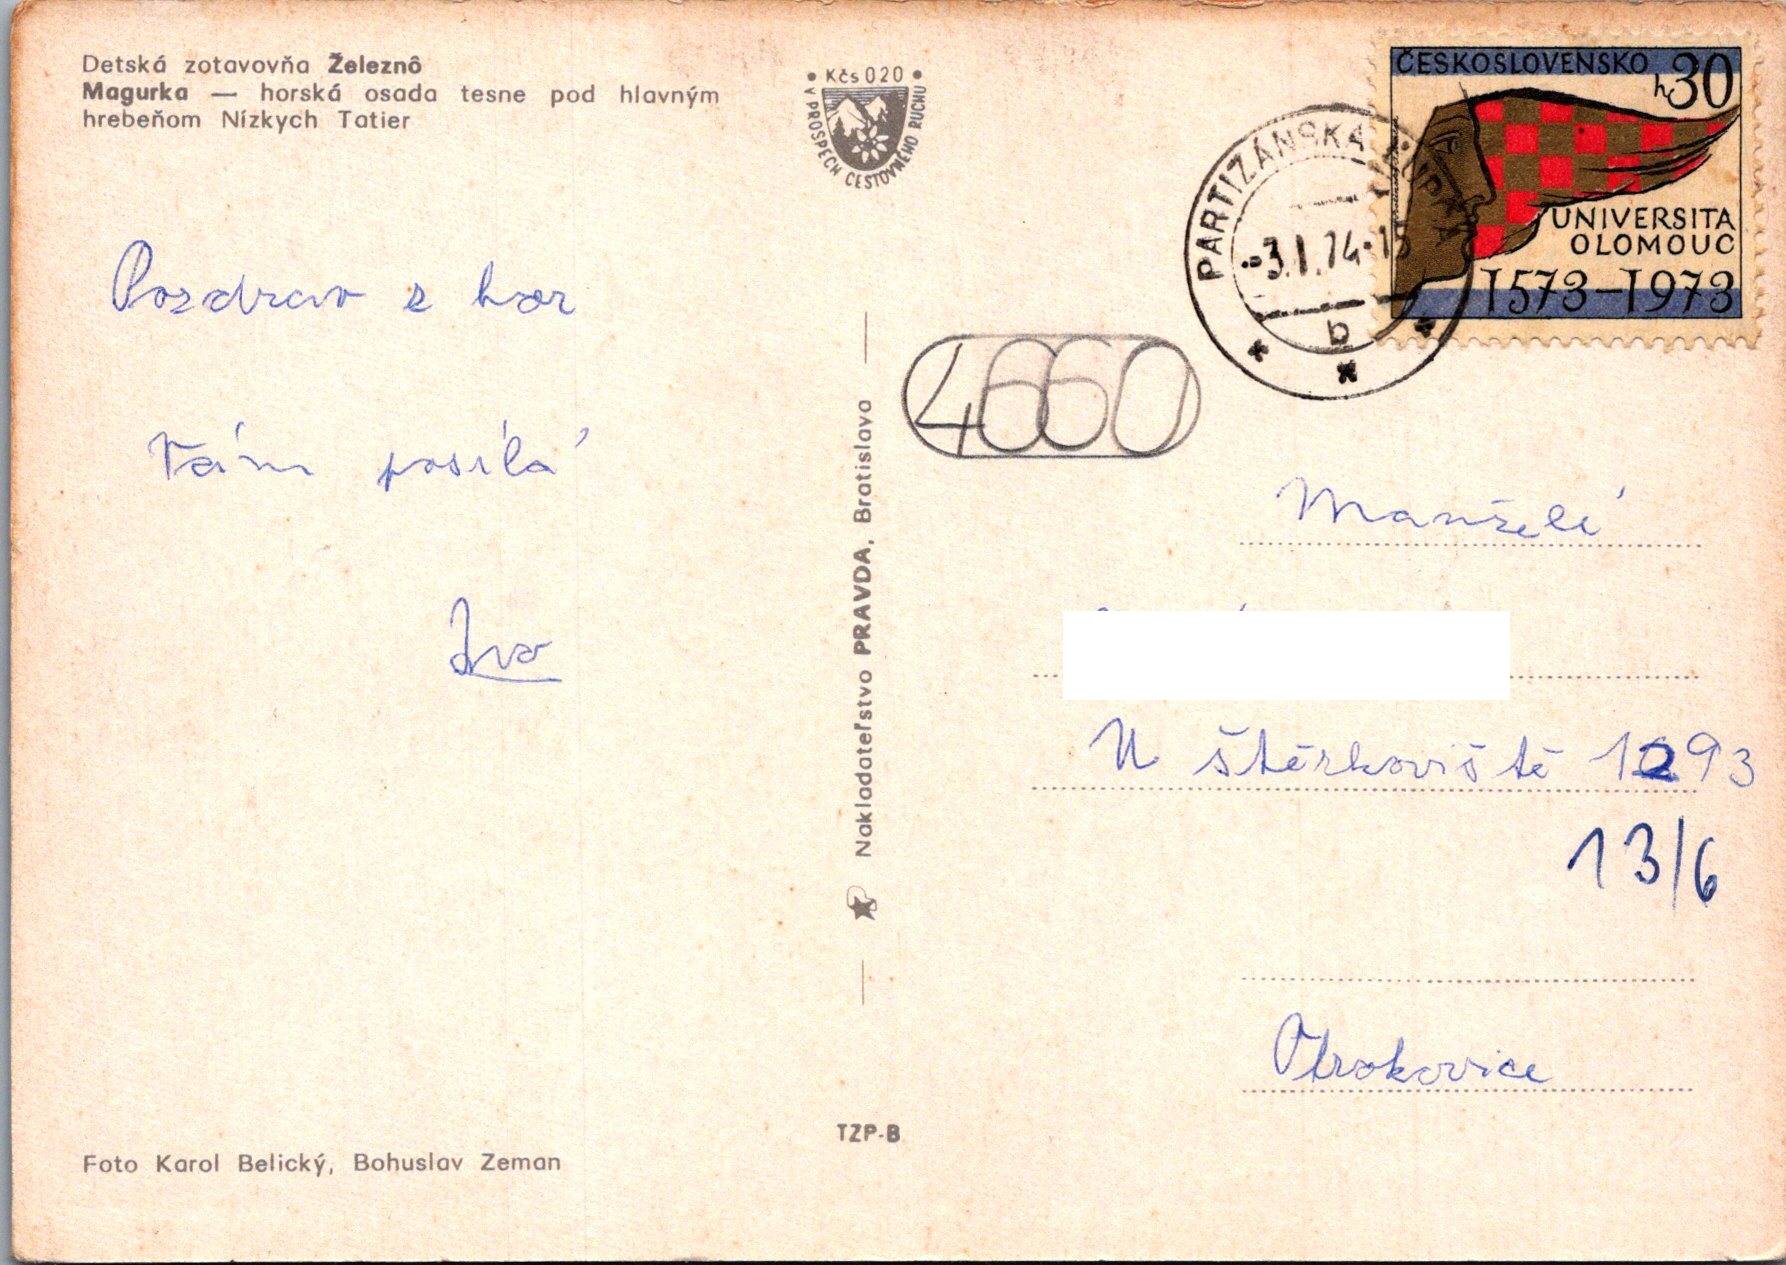 Detská zotavovňa Železnô
Magurka — horská osada tesne pod hlavným
hrebeňom Nízkych Tatier
• Kčs 020 •
V PROSPECH CESTOVNÉHO RUCHU
ČESKOSLOVENSKO
h30
UNIVERSITA
OLOMOUC
1573–1973
PARTIZÁNSKA ĽUPČA
-3.1.74-15
b
Pozdrav z hor
Vám posílá
Iva
4660
Nakladateľstvo PRAVDA, Bratislava
Manželé
U štěrkoviště 1293
13/6
Otrokovice
TZP-B
Foto Karol Belický, Bohuslav Zeman